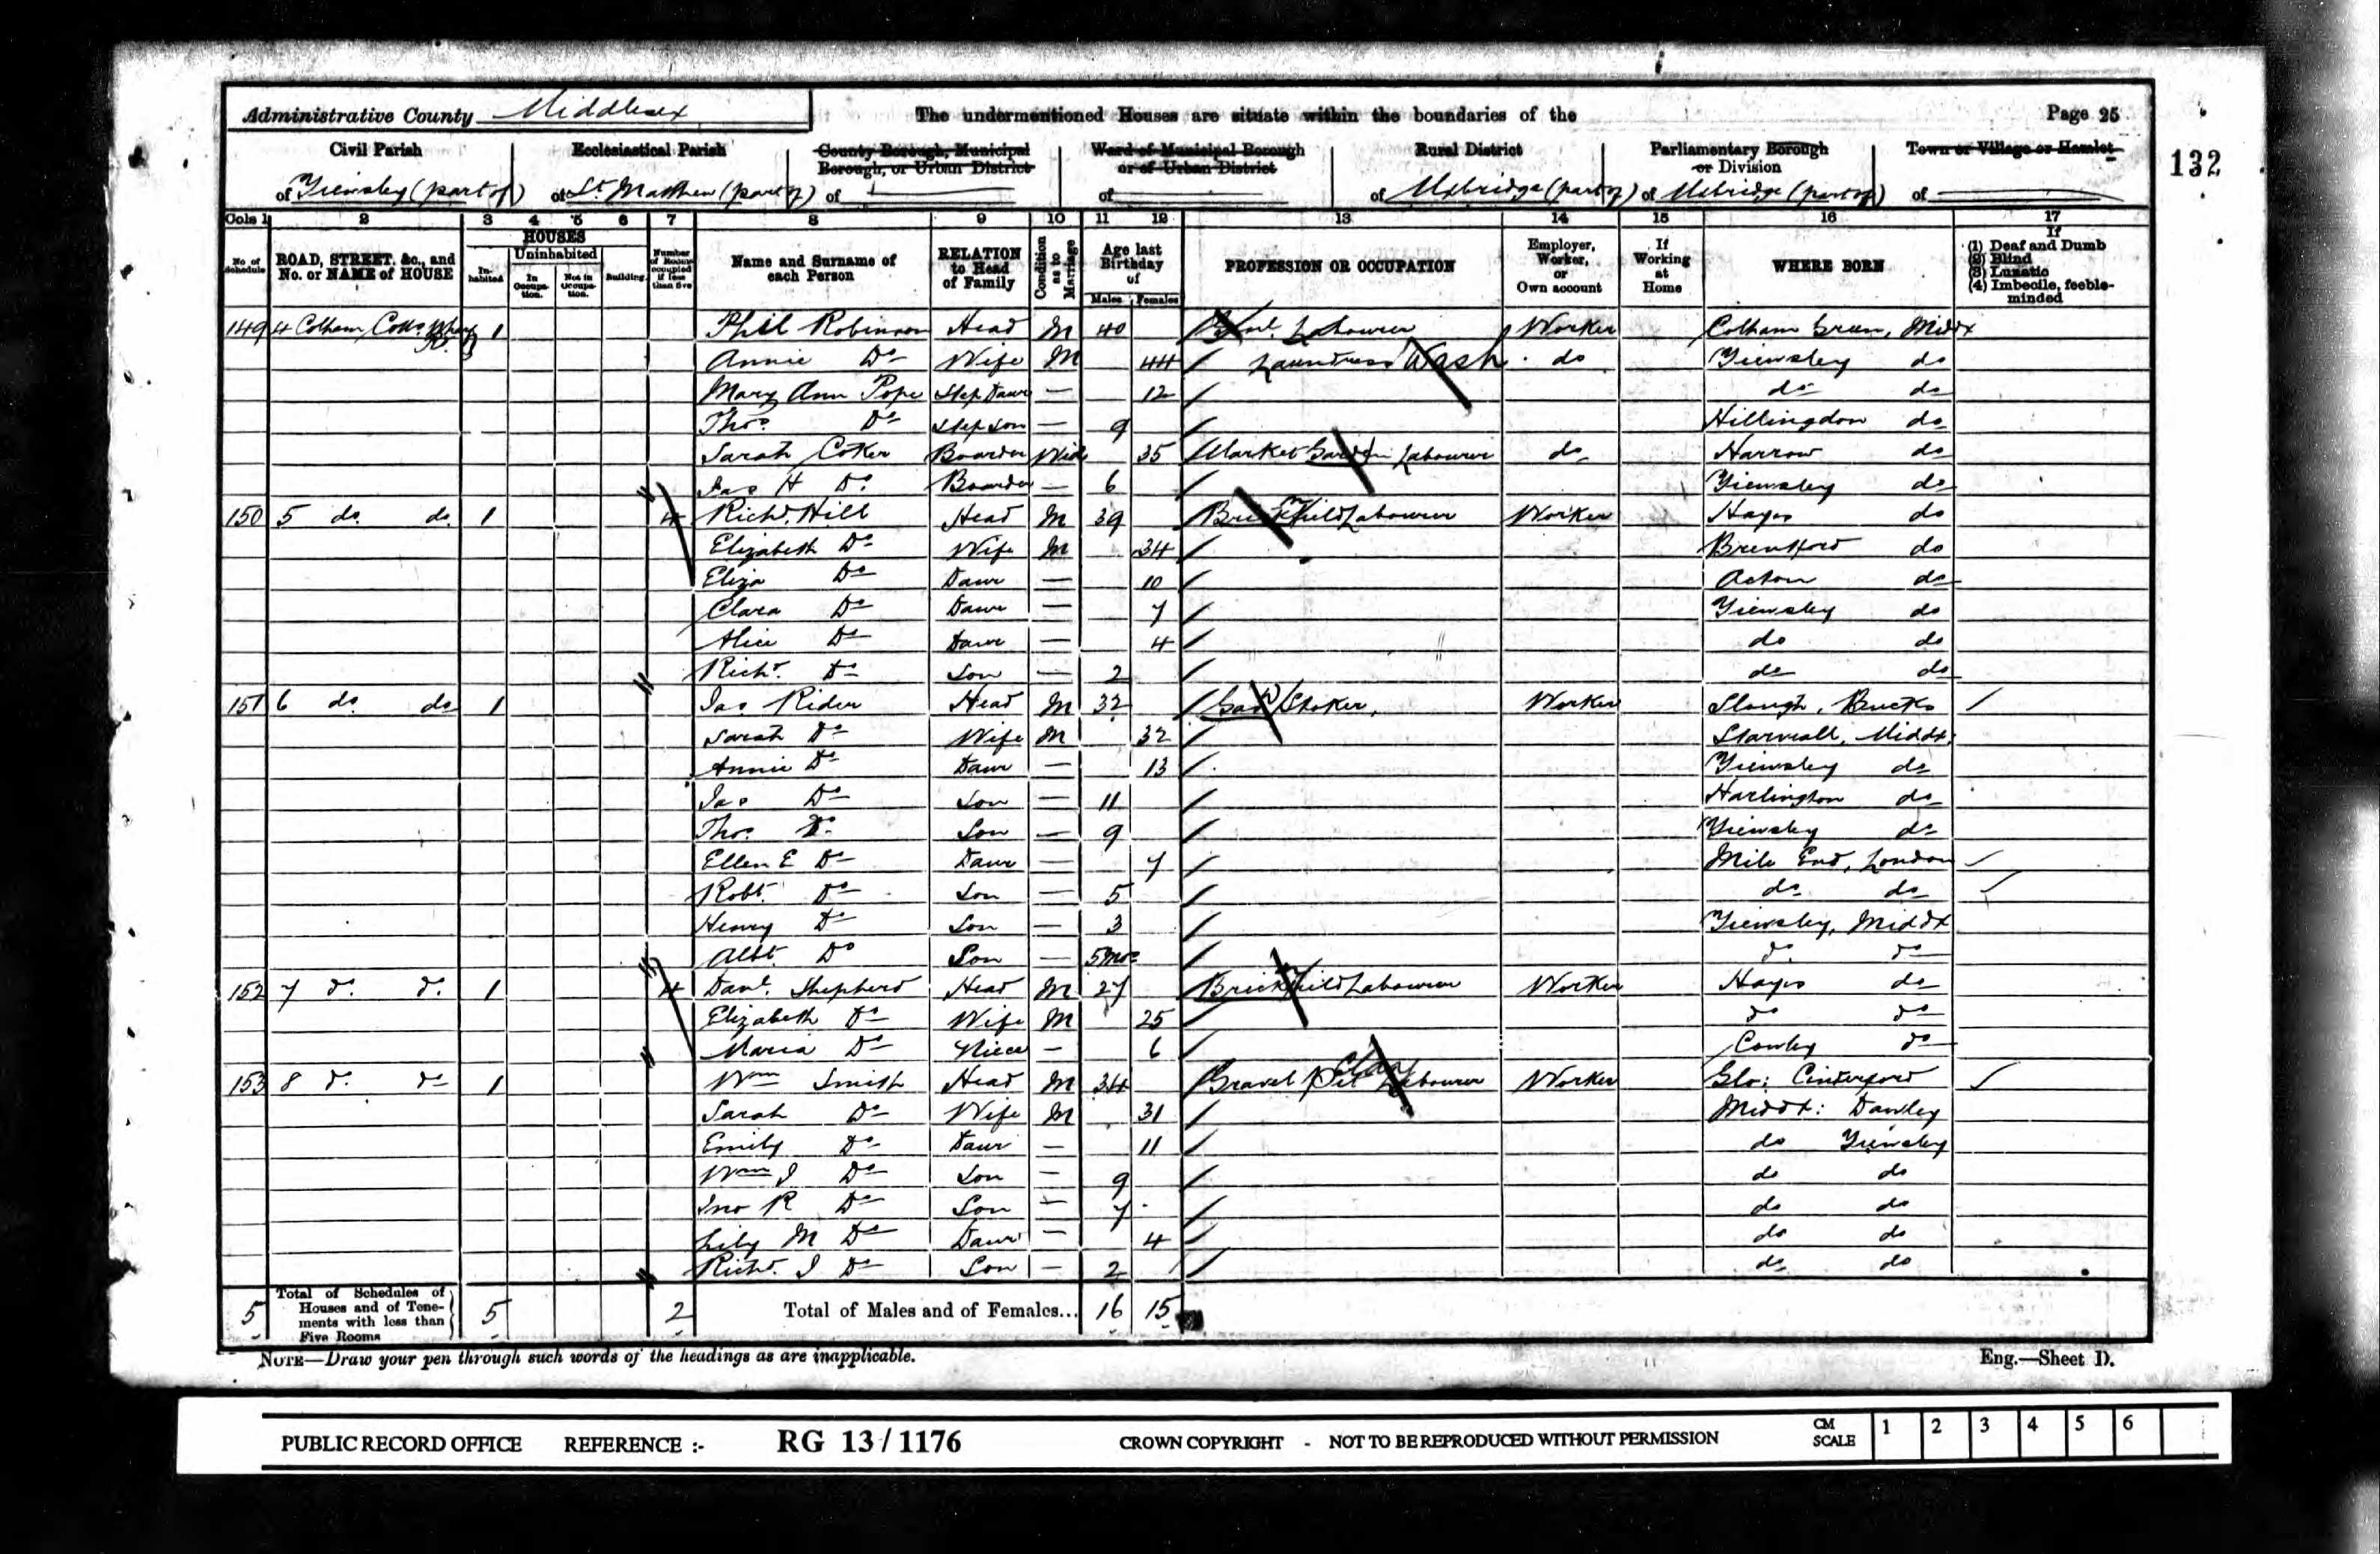 Administrative County Middlesex The undermentioned Houses are situate within the boundaries of the Page 25
132
Civil Parish Ecclesiastical Parish County Borough, Municipal Borough, or Urban District Ward of Municipal Borough or of Urban District Rural District Parliamentary Borough or Division Town or Village or Hamlet
of Yiewsley (part of) of St. Matthew (part of) of of of Uxbridge (part of) of Uxbridge (part of) of
Cols 1 2 3 4 5 6 7 8 9 10 11 12 13 14 15 16 17
No. of Schedule ROAD, STREET, &c., and No. or NAME of HOUSE HOUSES Inhabited Uninhabited In Occupation. Not in Occupation. Building Number of Rooms occupied if less than five Name and Surname of each Person RELATION to Head of Family Condition as to Marriage Age last Birthday of Males Females PROFESSION OR OCCUPATION Employer, Worker, or Own account If Working at Home WHERE BORN If (1) Deaf and Dumb (2) Blind (3) Lunatic (4) Imbecile, feeble-minded
149 4 Colham Cotts Wharf Rd. 1 Phil Robinson Head M 40 Labourer Worker Colham Green, Middx
Annie Do Wife M 44 Laundress Wash do Yiewsley do
Mary Ann Pope Step Daur — 12 do do
Thos. Do Step Son — 9 Hillingdon do
Sarah Coker Boarder Wid 35 Market Garden Labourer do Harrow do
Jas H Do Boarder — 6 Yiewsley do
150 5 do do 1 4 Richd. Hill Head M 39 Brickfield Labourer Worker Hayes do
Elizabeth Do Wife M 34 Brentford do
Eliza Do Daur — 10 Acton do
Clara Do Daur — 7 Yiewsley do
Alice Do Daur — 4 do do
Richd. Do Son — 2 do do
151 6 do do 1 Jas. Rider Head M 32 Gas Stoker, Worker Slough, Bucks
Sarah Do Wife M 32 Starveall, Middx
Annie Do Daur — 13 Yiewsley do
Jas Do Son — 11 Harlington do
Thos. Do Son — 9 Yiewsley do
Ellen E Do Daur — 7 Mile End, London
Robt. Do Son — 5 do do
Henry Do Son — 3 Yiewsley, Middx
Albt. Do Son — 5mos do do
152 7 do do 1 4 Danl. Shepherd Head M 27 Brickfield Labourer Worker Hayes do
Elizabeth Do Wife M 25 do do
Maria Do Niece — 6 Cowley do
153 8 do do 1 Wm Smith Head M 34 Gravel Pit Labourer Worker Glo: Cinderford
Sarah Do Wife M 31 Middx: Dawley
Emily Do Daur — 11 do Yiewsley
Wm J Do Son — 9 do do
Jno R Do Son — 7 do do
Lily M Do Daur — 4 do do
Richd. J Do Son — 2 do do
5 Total of Schedules of Houses and of Tenements with less than Five Rooms 5 2 Total of Males and of Females... 16 15
NOTE—Draw your pen through such words of the headings as are inapplicable. Eng.—Sheet D.
PUBLIC RECORD OFFICE REFERENCE :- RG 13/1176 CROWN COPYRIGHT - NOT TO BE REPRODUCED WITHOUT PERMISSION CM SCALE 1 2 3 4 5 6